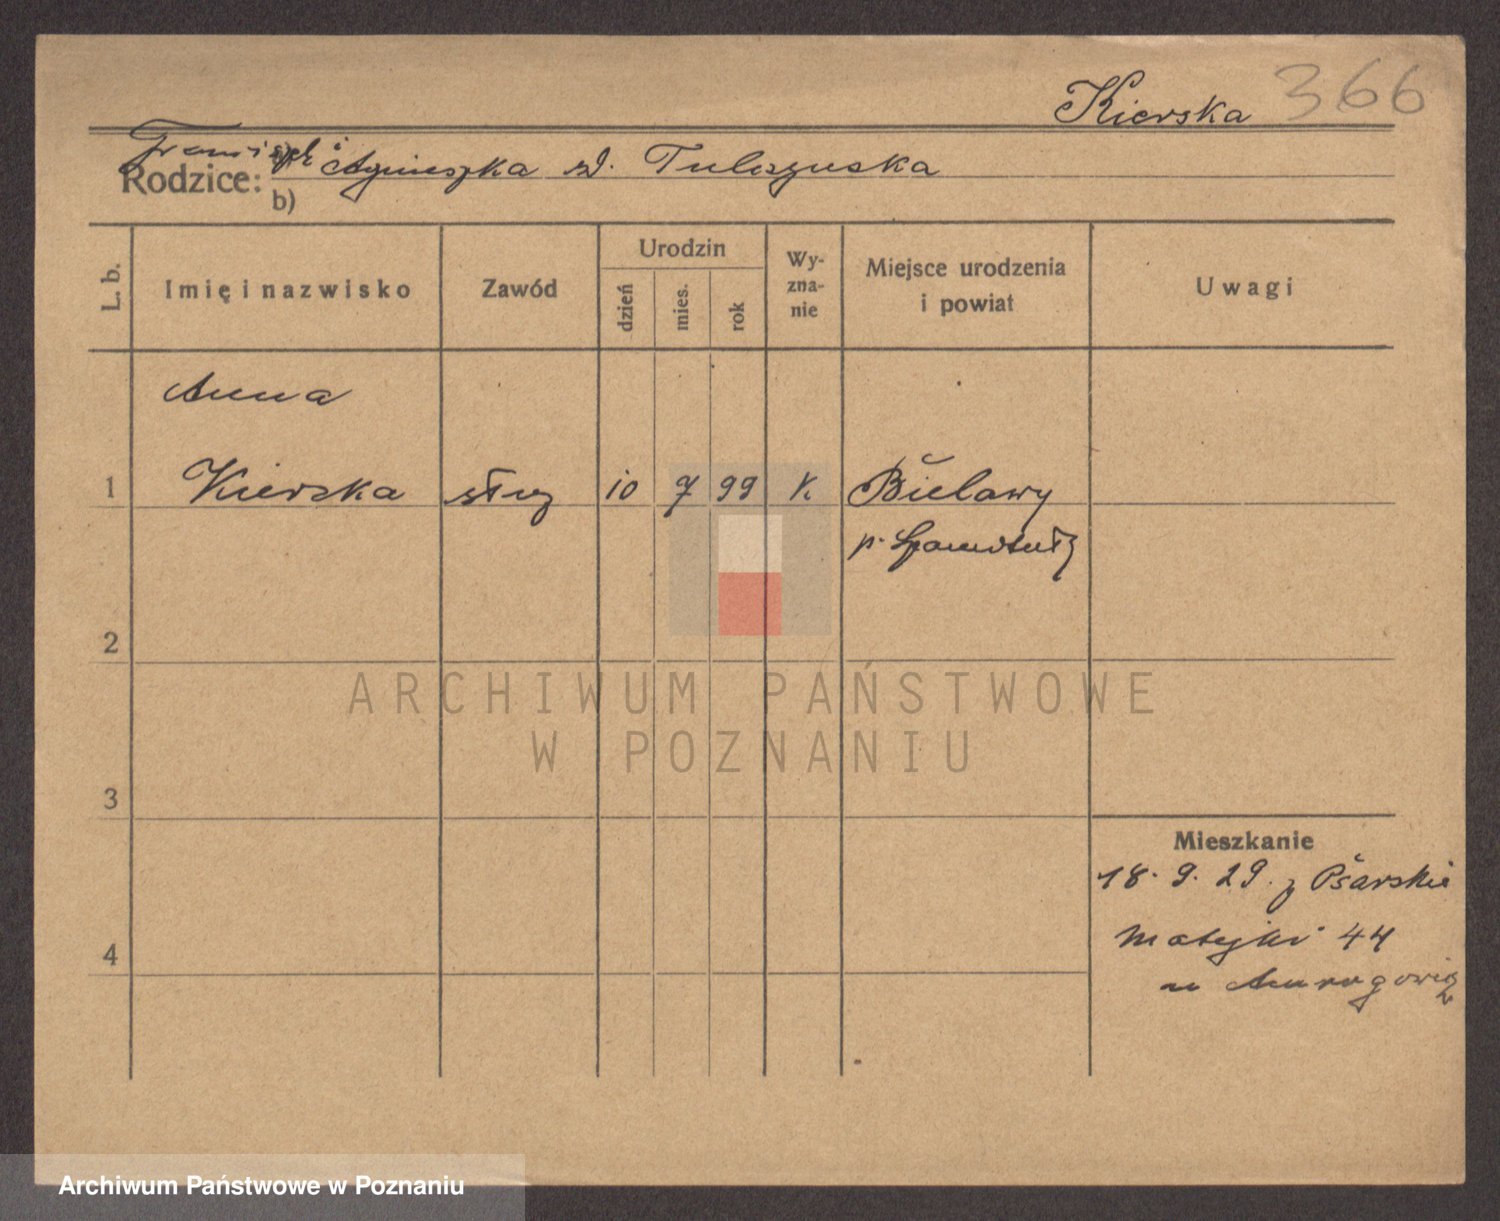 Kierska 366
Franciszek i Agnieszka zd.
Rodzice:
b)
L. b.
Imię i nazwisko
Zawód
Urodzin
dzień
mies.
rok
Wy-
zna-
nie
Miejsce urodzenia
i powiat
Uwagi
Anna
1 Kierska służ 10 7 99 K Bielawy
p. Szamotuły
2
ARCHIWUM PAŃSTWOWE
W POZNANIU
3
Mieszkanie
18. 9. 29. z Psarskie
4 Matejki 44
u
Archiwum Państwowe w Poznaniu